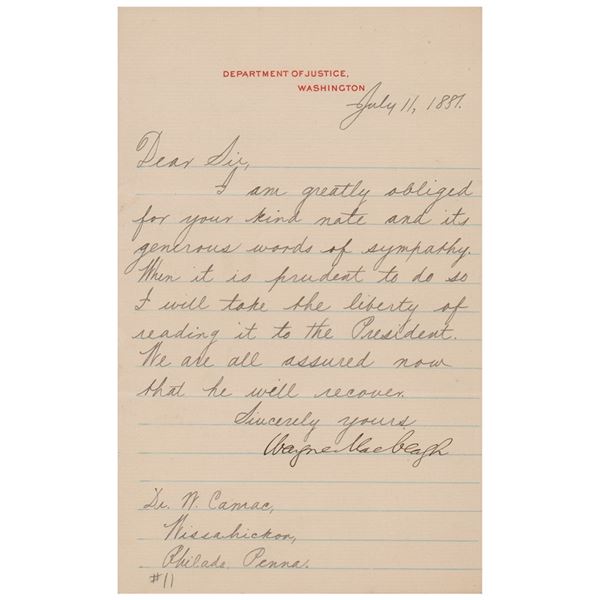 DEPARTMENT OF JUSTICE,
WASHINGTON
July 11, 1881.
Dear Sir,
I am greatly obliged
for your kind note and its
generous words of sympathy.
When it is prudent to do so
I will take the liberty of
reading it to the President.
We are all assured now
that he will recover.
Sincerely yours
Wayne MacVeagh
Dr. W. Camac,
Wissahickon,
Philada. Penna.
#11